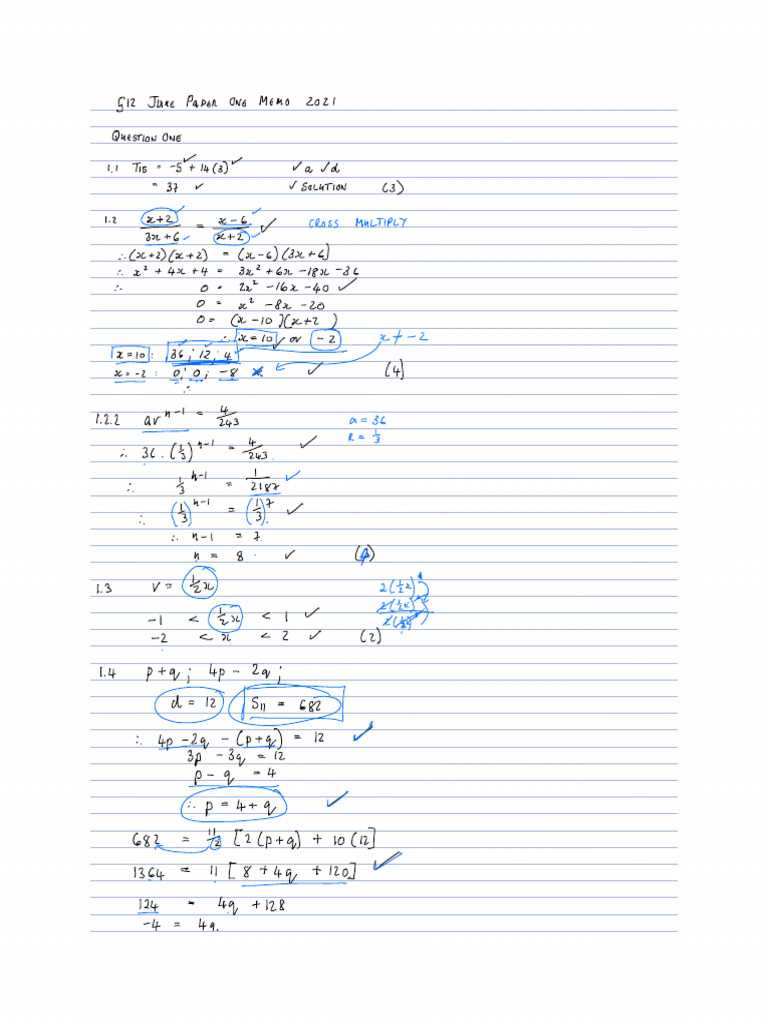 G12 JUNE PAPER ONE MEMO 2021
QUESTION ONE
1.1 T15 = -5 ✓ + 14(3) ✓ ✓ a ✓ d
= 37 ✓ ✓ SOLUTION (3)
1.2 (x+2)/(3x+6) = (x-6)/(x+2) ✓ CROSS MULTIPLY
∴ (x+2)(x+2) = (x-6)(3x+6)
∴ x² + 4x + 4 = 3x² + 6x - 18x - 36
∴ 0 = 2x² - 16x - 40 ✓
0 = x² - 8x - 20
0 = (x-10)(x+2)
∴ x = 10 ✓ or -2 x ≠ -2
x = 10 : 36 ; 12 ; 4
x = -2 : 0 ; 0 ; -8 ✗ ✓ (4)
∴
1.2.2 ar^(n-1) = 4/243 a = 36
∴ 36 . (1/3)^(n-1) = 4/243 ✓ R = 1/3
∴ 1/3^(n-1) = 1/2187 ✓
∴ (1/3)^(n-1) = (1/3)^7 ✓
∴ n-1 = 7
n = 8 . ✓
1.3 v = ½x 2(½x)
-1 < ½x < 1 ✓ 2(½x)²
-2 < x < 2 ✓ (2)
1.4 p+q ; 4p - 2q ;
d = 12 S11 = 682
∴ 4p - 2q - (p+q) = 12 ✓
3p - 3q = 12
p - q = 4
∴ p = 4 + q ✓
682 = 11/2 [2(p+q) + 10(12)]
1364 = 11 [8 + 4q + 120] ✓
124 = 4q + 128
-4 = 4q.